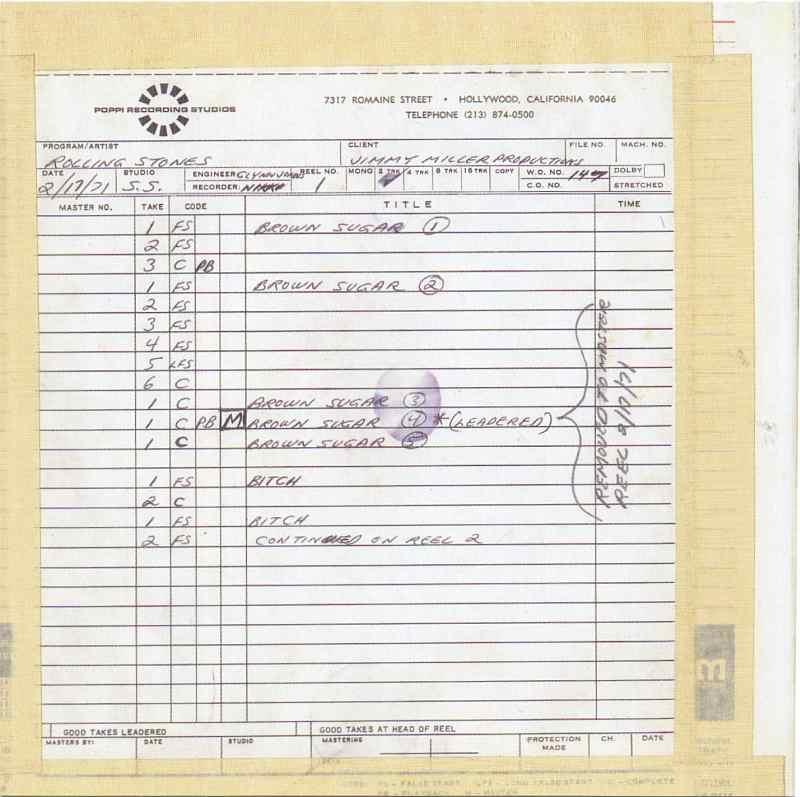 POPPI RECORDING STUDIOS
7317 ROMAINE STREET • HOLLYWOOD, CALIFORNIA 90046
TELEPHONE (213) 874-0500
PROGRAM/ARTIST CLIENT FILE NO. MACH. NO.
ROLLING STONES JIMMY MILLER PRODUCTIONS
DATE STUDIO ENGINEER: GLYNN JOHNS REEL NO. MONO 2 TRK 4 TRK 8 TRK 16 TRK COPY W.O. NO. DOLBY
2/17/71 S.S. RECORDER: 1 C.O. NO. STRETCHED
MASTER NO. TAKE CODE TITLE TIME
1 FS BROWN SUGAR 1
2 FS
3 C PB
1 FS BROWN SUGAR 2
2 FS
3 FS
4 FS
5 LFS
6 C
1 C BROWN SUGAR 3
1 C PB M BROWN SUGAR 4 * (LEADERED)
1 C BROWN SUGAR 5
REMOVED TO MASTER
REEL 2/17/71
1 FS BITCH
2 C
1 FS BITCH
2 FS CONTINUED ON REEL 2
GOOD TAKES LEADERED GOOD TAKES AT HEAD OF REEL
MASTERS BY: DATE STUDIO MASTERING PROTECTION MADE CH. DATE
3M